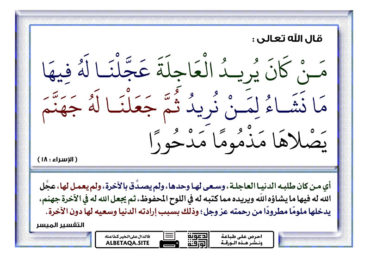 قال الله تعالى :
مَـنْ كَانَ يُرِيـدُ الْعَاجِلَةَ عَجَّلْنَـا لَهُ فِيهَا
مَا نَشَـاءُ لِمَـنْ نُرِيدُ ثُمَّ جَعَلْنَـا لَهُ جَهَنَّمَ
يَصْلاهَا مَذْمُومًا مَدْحُورًا
( الإسراء : ١٨ )
أي من كان طلبـه الدنيـا العاجلـة ، وسـعى لهـا وحدهـا ، ولم يصـدّق بالآخرة، ولم يعمـل لها، عجَّل
الله له فيها ما يشاؤه الله ويريده مما كتبه له في اللوح المحفوظ، ثم يجعل الله له في الآخرة جهنم،
يدخلها ملومًا مطرودًا من رحمته عز وجل؛ وذلك بسبب إرادته الدنيا وسعيه لها دون الآخرة.
التفسير الميسر
احرص على طباعة
ونشر هذه الورقة
فالدال على الخير كفاعله
ALBETAQA.SITE